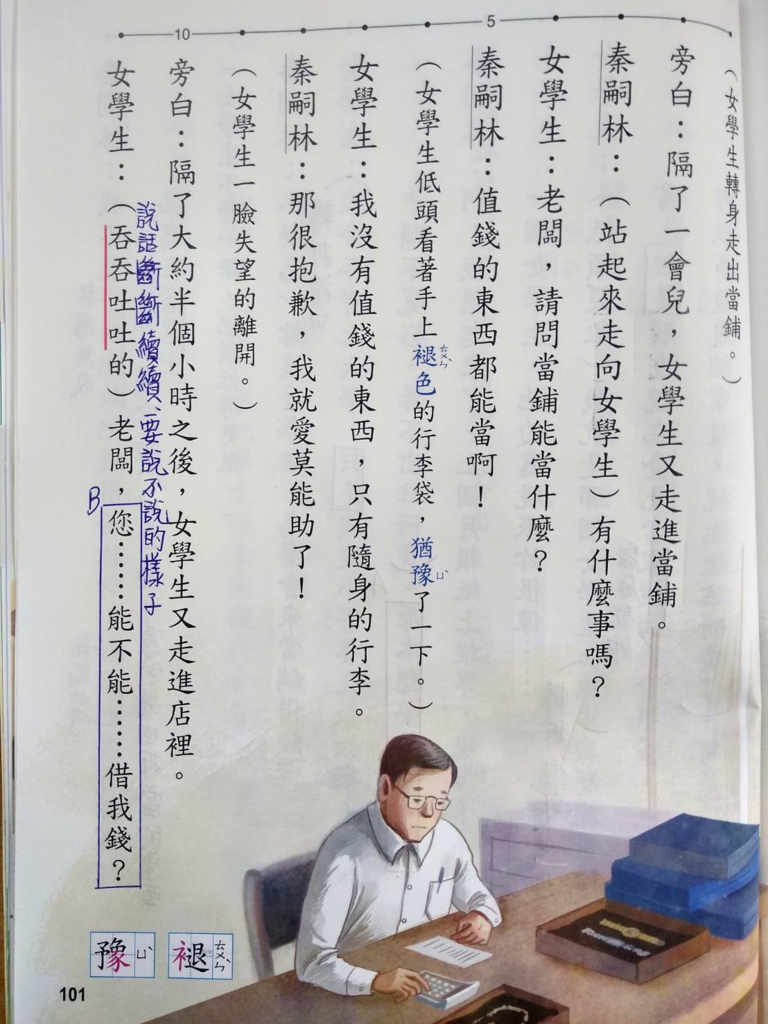 （女學生轉身走出當鋪。）
旁白：隔了一會兒，女學生又走進當鋪。
秦嗣林：（站起來走向女學生）有什麼事嗎？
女學生：老闆，請問當鋪能當什麼？
秦嗣林：值錢的東西都能當啊！
（女學生低頭看著手上褪色的行李袋，猶豫了一下。）
ㄊㄨㄣˋ
ㄩˋ
女學生：我沒有值錢的東西，只有隨身的行李。
秦嗣林：那很抱歉，我就愛莫能助了！
（女學生一臉失望的離開。）
旁白：隔了大約半個小時之後，女學生又走進店裡。
說話斷斷續續、要說不說的樣子
女學生：（吞吞吐吐的）老闆，您……能不能……借我錢？
B
5
10
褪ㄊㄨㄣˋ
豫ㄩˋ
101